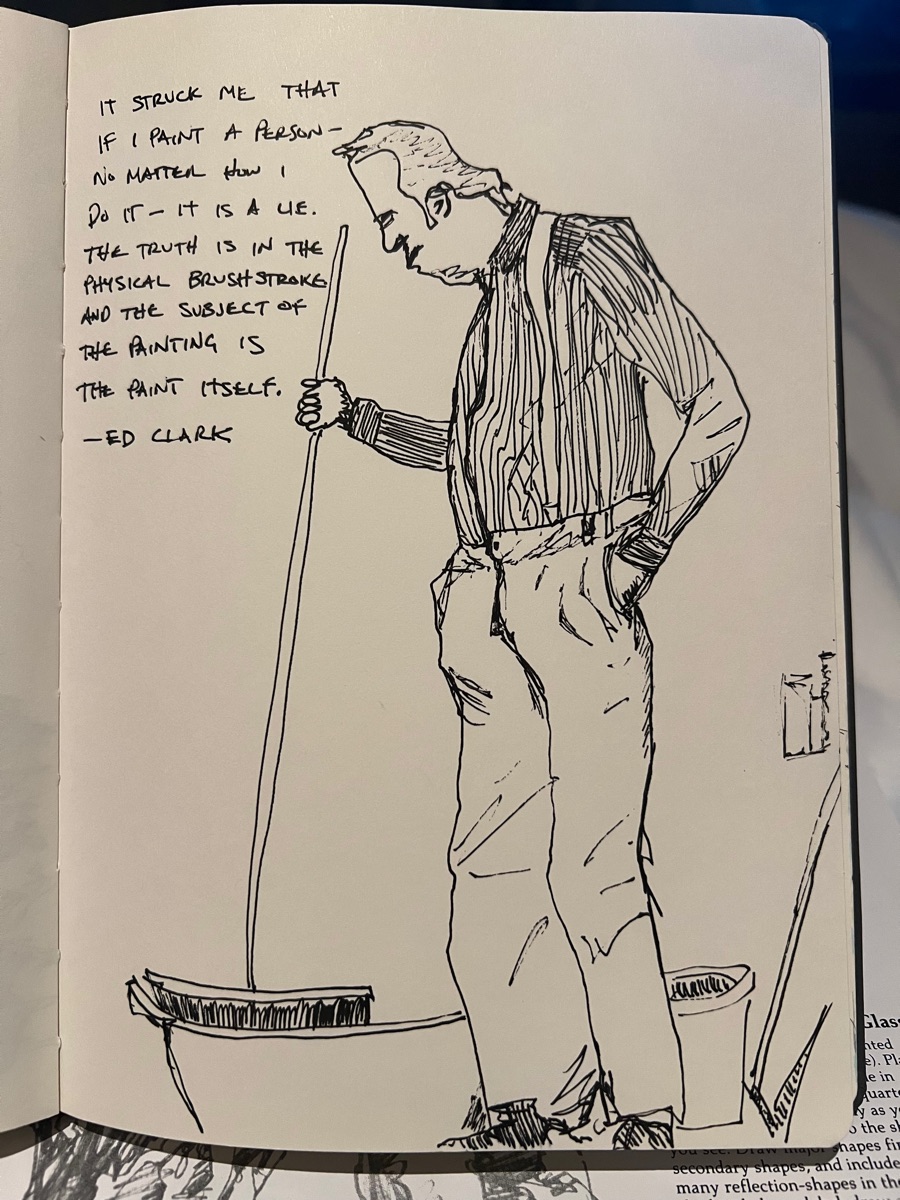 IT STRUCK ME THAT
IF I PAINT A PERSON—
NO MATTER HOW I
DO IT — IT IS A LIE.
THE TRUTH IS IN THE
PHYSICAL BRUSHSTROKE
AND THE SUBJECT OF
THE PAINTING IS
THE PAINT ITSELF.
—ED CLARK
you see. Draw major shapes
secondary shapes, and include
many reflection-shapes in the